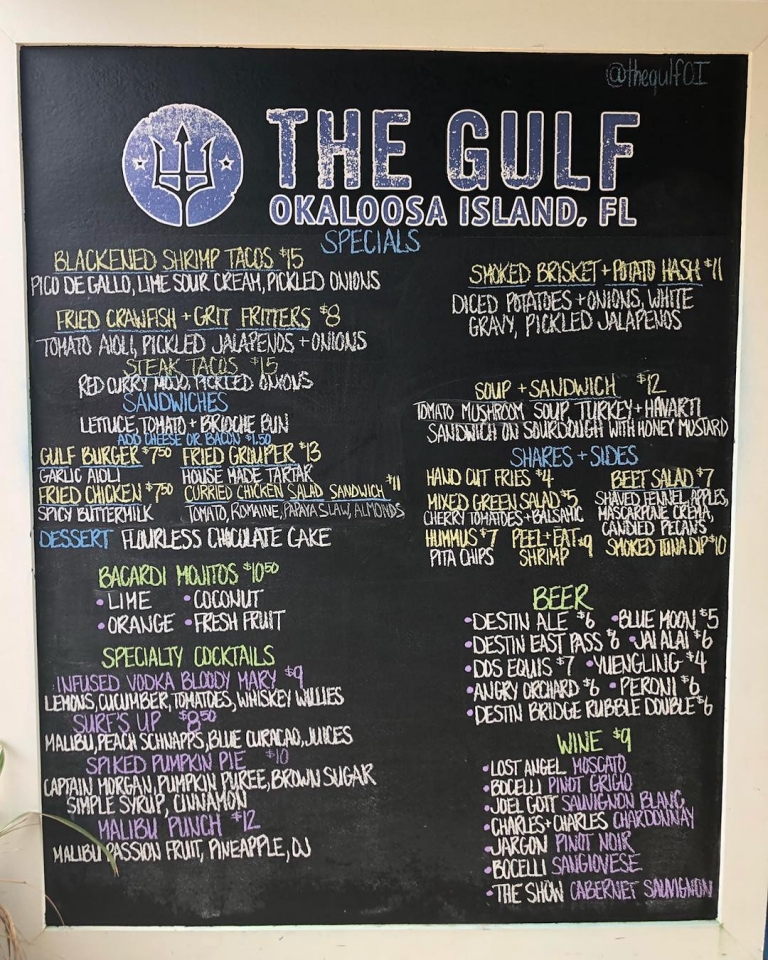 @thegulfOI
THE GULF
OKALOOSA ISLAND, FL
SPECIALS
BLACKENED SHRIMP TACOS $15
PICO DE GALLO, LIME SOUR CREAM, PICKLED ONIONS
FRIED CRAWFISH + GRIT FRITTERS $8
TOMATO AIOLI, PICKLED JALAPENOS + ONIONS
STEAK TACOS $15
RED CURRY MOJO, PICKLED ONIONS
SMOKED BRISKET + POTATO HASH $11
DICED POTATOES + ONIONS, WHITE
GRAVY, PICKLED JALAPENOS
SOUP + SANDWICH $12
TOMATO MUSHROOM SOUP, TURKEY + HAVARTI
SANDWICH ON SOURDOUGH WITH HONEY MUSTARD
SANDWICHES
LETTUCE, TOMATO + BRIOCHE BUN
ADD CHEESE OR BACON $1.50
GULF BURGER $7.50 FRIED GROUPER $13
GARLIC AIOLI HOUSE MADE TARTAR
FRIED CHICKEN $7.50 CURRIED CHICKEN SALAD SANDWICH $11
SPICY BUTTERMILK TOMATO, ROMAINE, PAPAYA SLAW, ALMONDS
DESSERT FLOURLESS CHOCOLATE CAKE
SHARES + SIDES
HAND CUT FRIES $4
MIXED GREEN SALAD $5
CHERRY TOMATOES + BALSAMIC
HUMMUS $7
PITA CHIPS
PEEL + EAT $9
SHRIMP
BEET SALAD $7
SHAVED FENNEL, APPLES,
MASCARPONE CREMA,
CANDIED PECANS
SMOKED TUNA DIP $10
BACARDI MOJITOS $10.50
• LIME • COCONUT
• ORANGE • FRESH FRUIT
SPECIALTY COCKTAILS
INFUSED VODKA BLOODY MARY $9
LEMONS, CUCUMBER, TOMATOES, WHISKEY WILLIES
SURF'S UP $8.50
MALIBU, PEACH SCHNAPPS, BLUE CURACAO, JUICES
SPIKED PUMPKIN PIE $10
CAPTAIN MORGAN, PUMPKIN PUREE, BROWN SUGAR
SIMPLE SYRUP, CINNAMON
MALIBU PUNCH $12
MALIBU PASSION FRUIT, PINEAPPLE, OJ
BEER
• DESTIN ALE $6 • BLUE MOON $5
• DESTIN EAST PASS $6 • JAI ALAI $6
• DOS EQUIS $7 • YUENGLING $4
• ANGRY ORCHARD $6 • PERONI $6
• DESTIN BRIDGE RUBBLE DOUBLE $6
WINE $9
• LOST ANGEL MOSCATO
• BOCELLI PINOT GRIGIO
• JOEL GOTT SAUVIGNON BLANC
• CHARLES + CHARLES CHARDONNAY
• JARGON PINOT NOIR
• BOCELLI SANGIOVESE
• THE SHOW CABERNET SAUVIGNON